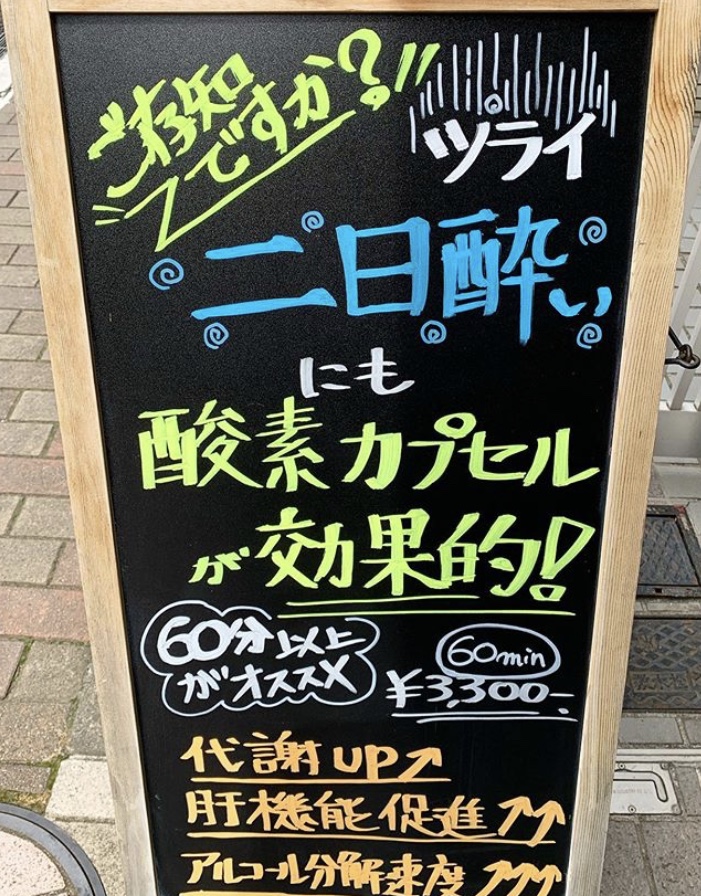 ご存知
ですか?
ツライ
二日酔い
にも
酸素カプセル
が効果的!
60分以上
がオススメ
60min
¥3,300-
代謝UP↗
肝機能促進↗↗
アルコール分解速度↗↗↗